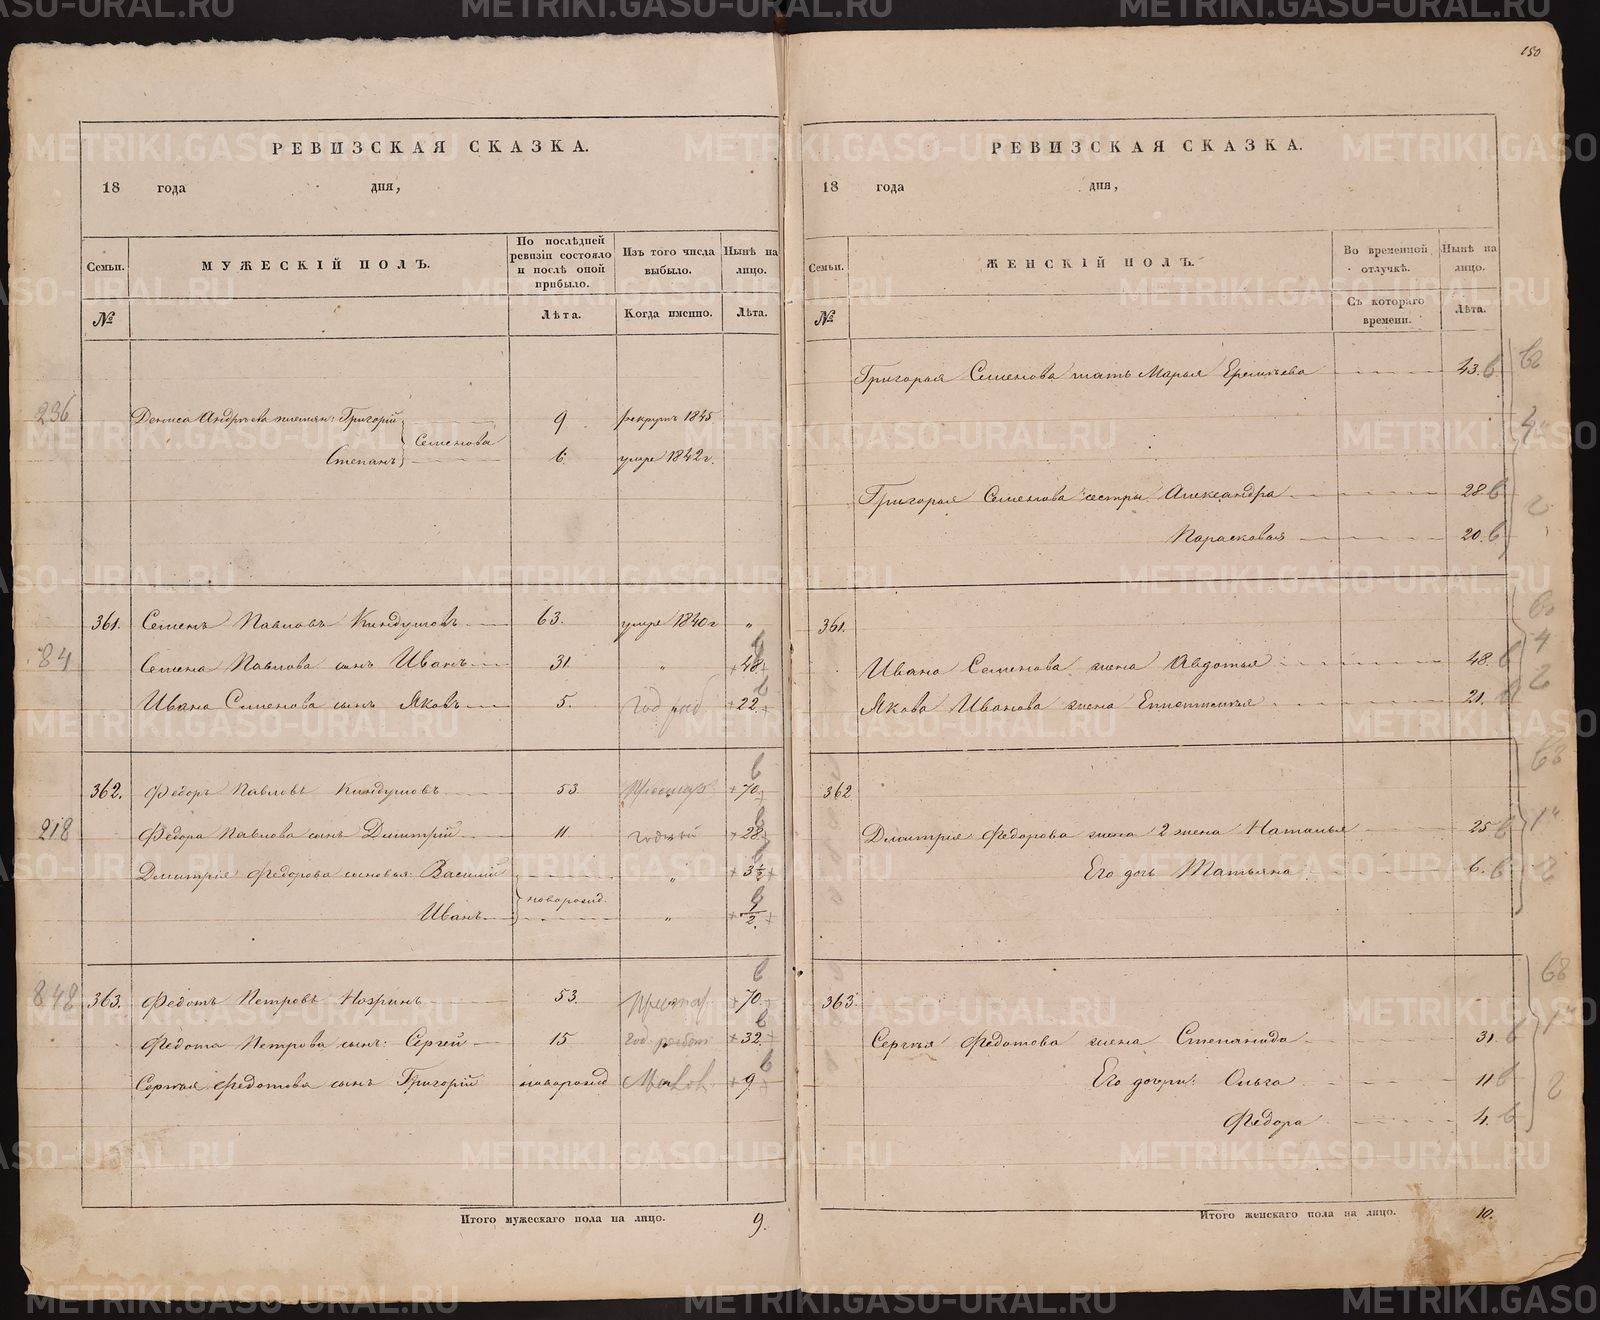 150
РЕВИЗСКАЯ СКАЗКА.
18 года дня,
Семьи. МУЖЕСКІЙ ПОЛЪ. По послѣдней ревизіи состояло и послѣ оной прибыло. Изъ того числа выбыло. Нынѣ на лицо.
№ Лѣта. Когда именно. Лѣта.
236 Дениса Андреева племян: Григорій 9 рекрутъ 1845
Семенова
Степанъ 6 умре 1842 г.
361. Семенъ Павловъ Киндушовъ 63. умре 1840 г „
84 Семена Павлова сынъ Иванъ 31. „ 48
Ивана Семенова сынъ Яковъ 5. год раб 22
362. Федоръ Павловъ Киндушовъ 53 70
218 Федора Павлова сынъ Дмитрій 11 годный 28
Дмитрія Федорова сыновья: Василій „ 3½
новорожд.
Иванъ „ ½
848 363. Федотъ Петровъ Нозринъ 53. 70
Федота Петрова сынъ: Сергей 15 год работ 32
Сергѣя Федотова сынъ Григорій новорожд 9
Итого мужескаго пола на лицо. 9.
РЕВИЗСКАЯ СКАЗКА.
18 года дня,
Семьи. ЖЕНСКІЙ ПОЛЪ. Во временной отлучкѣ. Нынѣ на лицо.
№ Съ котораго времени. Лѣта.
Григорья Семенова мать Марья Еремѣева 43
Григорья Семенова сестры Александра 28
Парасковья 20
361.
Ивана Семенова жена Авдотья 48.
Якова Иванова жена 21.
362
Дмитрія Федорова жена 2 жена Наталья 25
Его дочь Татьяна 6.
363.
Сергѣя Федотова жена Степанида 31
Его дочери: Ольга 11
Федора 4.
Итого женскаго пола на лицо. 10.
METRIKI.GASO-URAL.RU